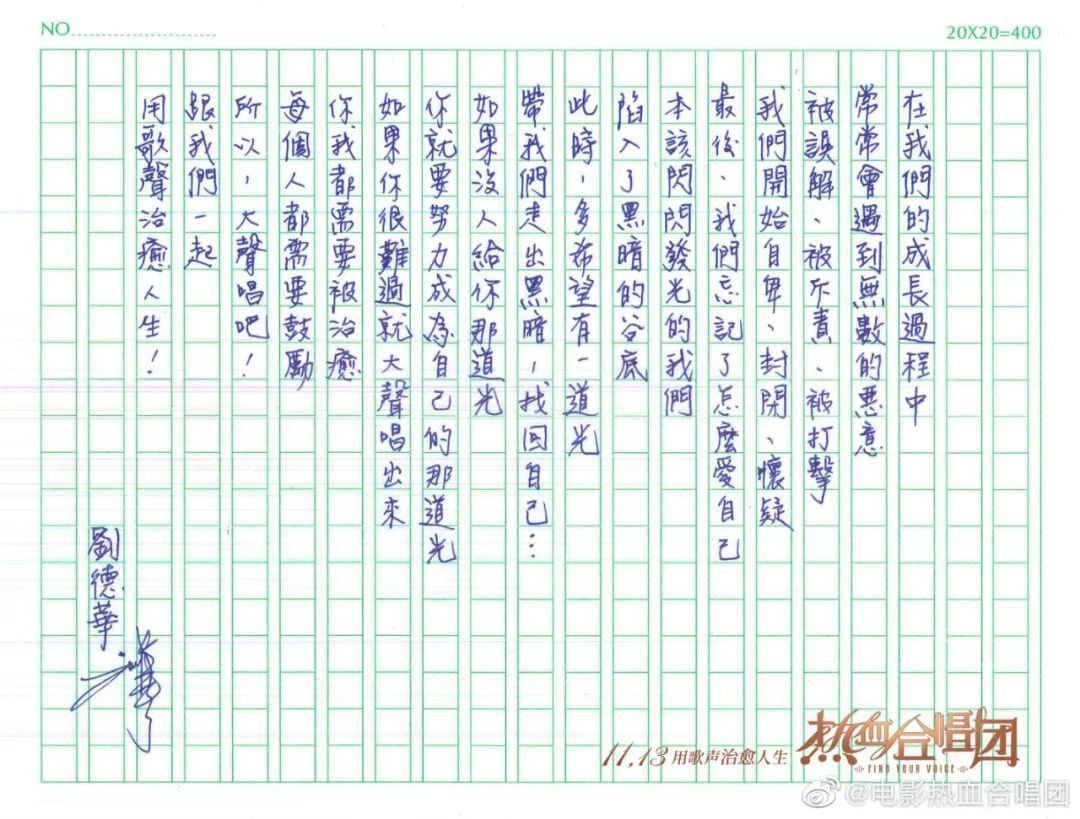 NO
20X20=400
在我們的成長過程中
常常會遇到無數的惡意
被誤解、被斥責、被打擊
我們開始自卑、封閉、懷疑
最後、我們忘記了怎麼愛自己
本該閃閃發光的我們
陷入了黑暗的谷底
此時，多希望有一道光
帶我們走出黑暗，找回自己…
如果沒人給你那道光
你就要努力成為自己的那道光
如果你很難過就大聲唱出來
你我都需要被治癒
每個人都需要鼓勵
所以，大聲唱吧！
跟我們一起
用歌聲治癒人生！
劉德華
11.13用歌声治愈人生
热血合唱团
FIND YOUR VOICE
@电影热血合唱团